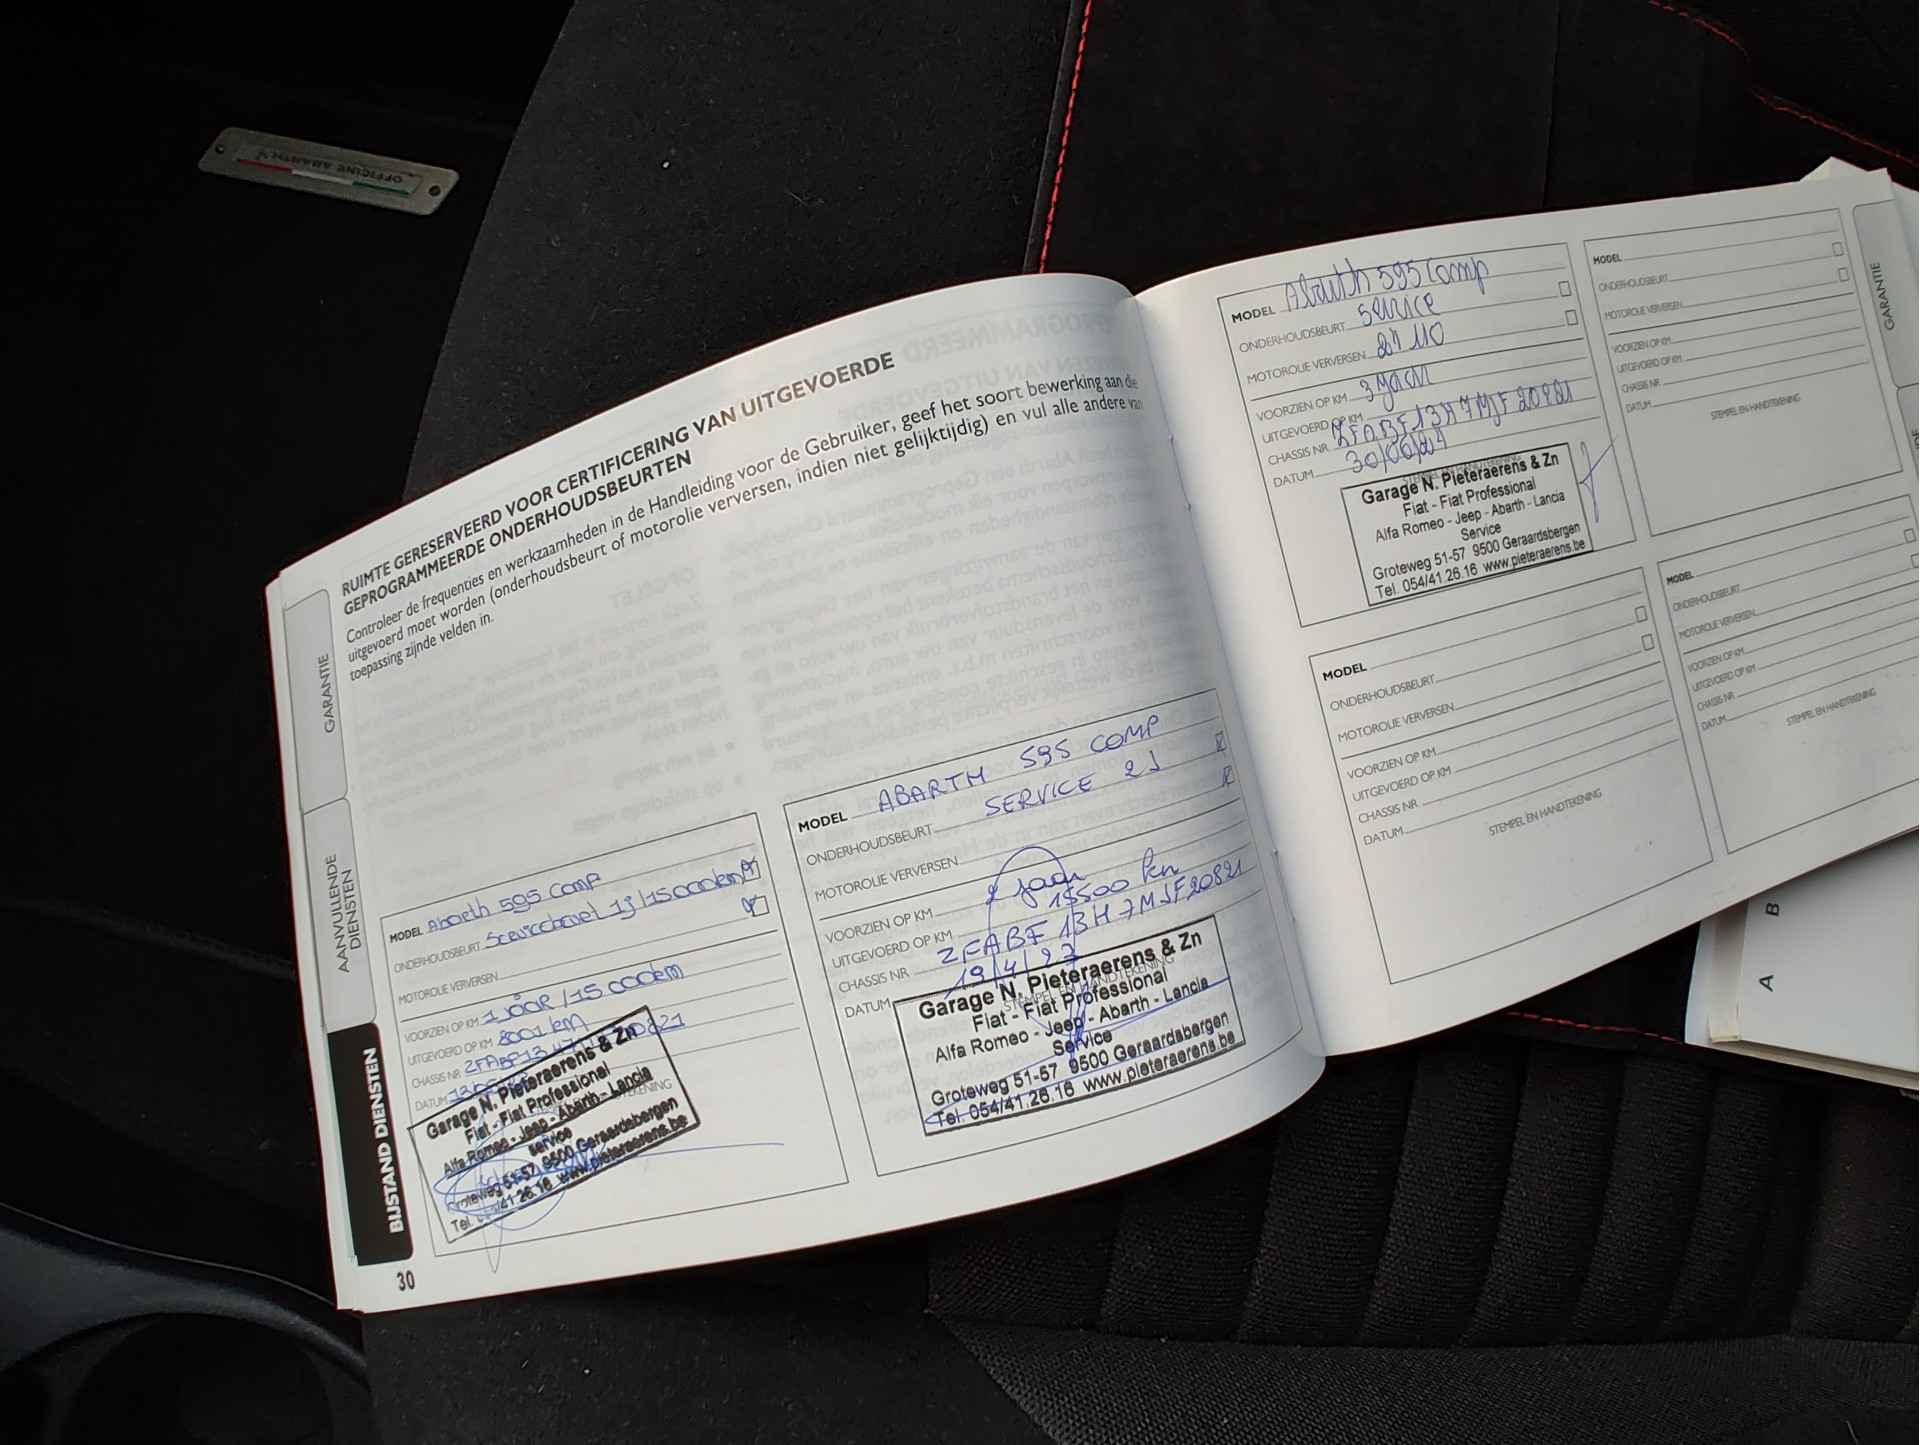 OFFICINE ABARTH
RUIMTE GERESERVEERD VOOR CERTIFICERING VAN UITGEVOERDE
GEPROGRAMMEERDE ONDERHOUDSBEURTEN
Controleer de frequenties en werkzaamheden in de Handleiding voor de Gebruiker, geef het soort bewerking aan die
uitgevoerd moet worden (onderhoudsbeurt of motorolie verversen, indien niet gelijktijdig) en vul alle andere van
toepassing zijnde velden in.
GARANTIE
AANVULLENDE
DIENSTEN
BIJSTAND DIENSTEN
MODEL Abarth 595 comp
ONDERHOUDSBEURT 1j/15000km
MOTOROLIE VERVERSEN
VOORZIEN OP KM 1 jaar/15 000km
UITGEVOERD OP KM 8001 km
CHASSIS NR
DATUM
Garage N. Pieteraerens & Zn
Fiat - Fiat Professional
Alfa Romeo - Jeep - Abarth - Lancia
service
Groteweg 51-57 9500 Geraardsbergen
Tel. 41.26.16 www.pieteraerens.be
30
MODEL ABARTH 595 COMP
ONDERHOUDSBEURT SERVICE 2J
MOTOROLIE VERVERSEN
VOORZIEN OP KM 2 jaar
UITGEVOERD OP KM 15500 km
CHASSIS NR ZFABF13H7MJF20821
DATUM 19/4/23
STEMPEL EN HANDTEKENING
Garage N. Pieteraerens & Zn
Fiat - Fiat Professional
Alfa Romeo - Jeep - Abarth - Lancia
Service
Groteweg 51-57 9500 Geraardsbergen
Tel. 054/41.26.16 www.pieteraerens.be
MODEL Abarth 595 comp
ONDERHOUDSBEURT service
MOTOROLIE VERVERSEN
VOORZIEN OP KM 3 jaar
UITGEVOERD OP KM
CHASSIS NR ZFABF13H7MJF20821
DATUM
Garage N. Pieteraerens & Zn
Fiat - Fiat Professional
Alfa Romeo - Jeep - Abarth - Lancia
Service
Groteweg 51-57 9500 Geraardsbergen
Tel. 054/41.26.16 www.pieteraerens.be
MODEL
ONDERHOUDSBEURT
MOTOROLIE VERVERSEN
VOORZIEN OP KM
UITGEVOERD OP KM
CHASSIS NR
DATUM
STEMPEL EN HANDTEKENING
MODEL
ONDERHOUDSBEURT
MOTOROLIE VERVERSEN
VOORZIEN OP KM
UITGEVOERD OP KM
CHASSIS NR.
DATUM
STEMPEL EN HANDTEKENING
MODEL
ONDERHOUDSBEURT
MOTOROLIE VERVERSEN
VOORZIEN OP KM
UITGEVOERD OP KM
CHASSIS NR
DATUM
STEMPEL EN HANDTEKENING
GARANTIE
A
B